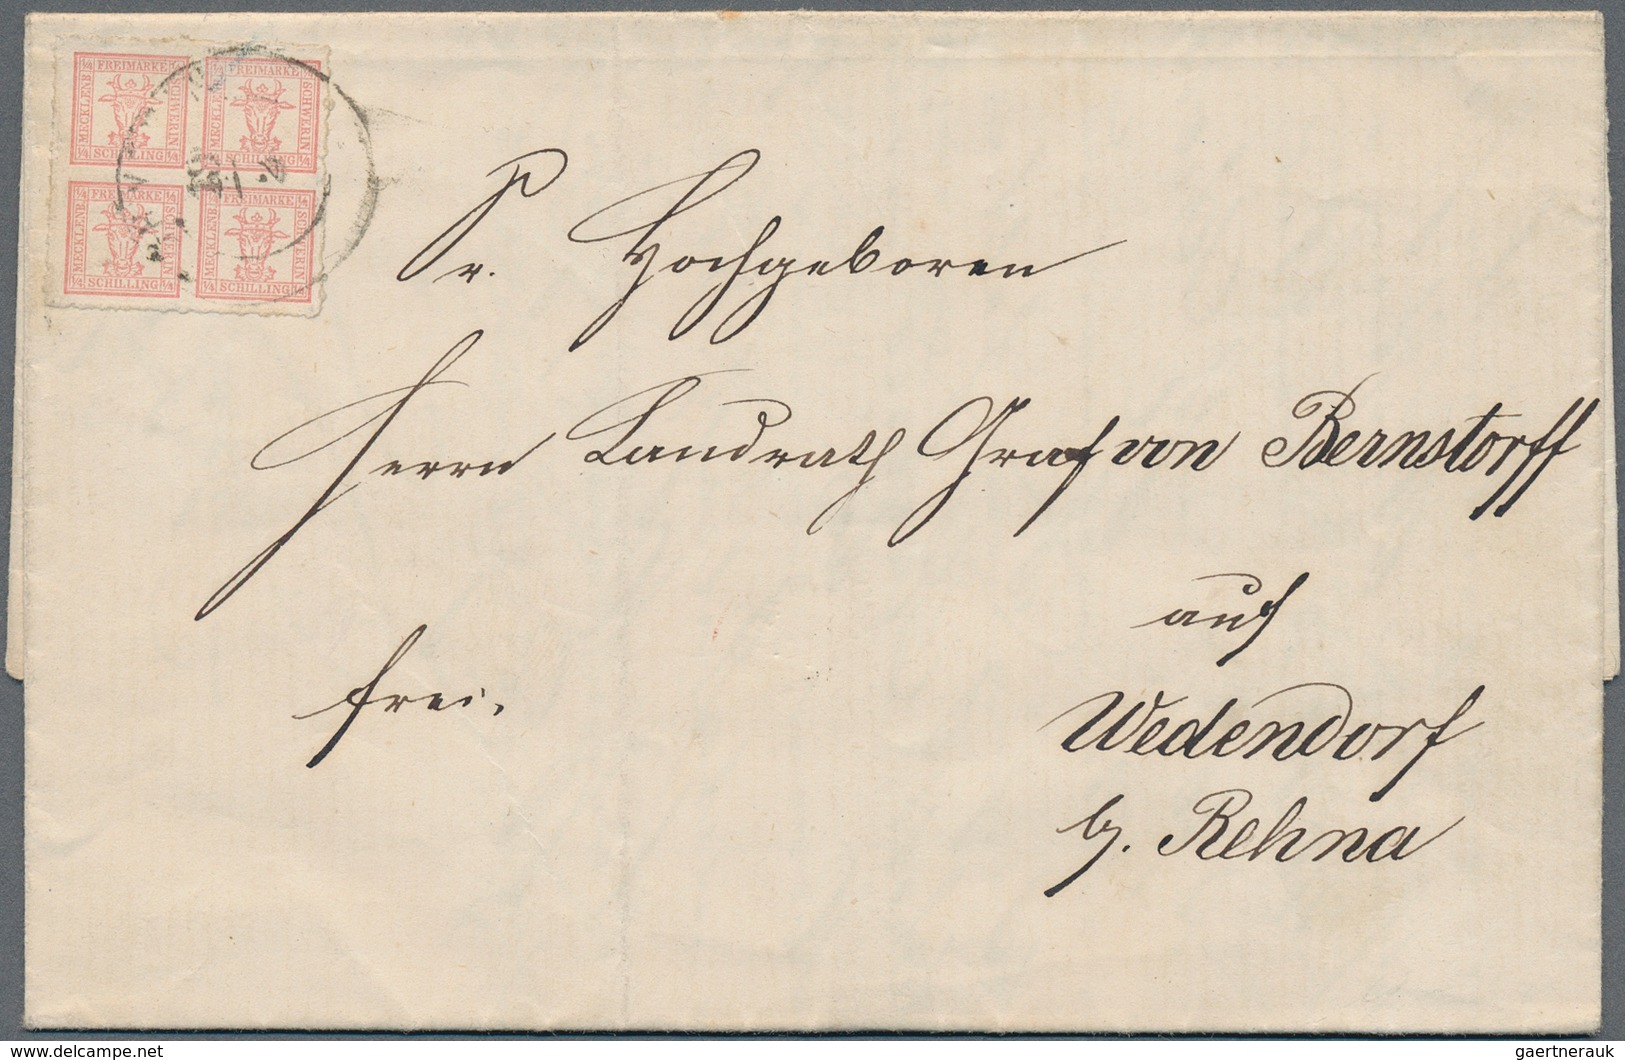 ¼ FREIMARKE ¼
MECKLENB
SCHWERIN
¼ SCHILLING ¼
¼ FREIMARKE ¼
MECKLENB
SCHWERIN
¼ SCHILLING ¼
¼ FREIMARKE ¼
MECKLENB
SCHWERIN
¼ SCHILLING ¼
¼ FREIMARKE ¼
MECKLENB
SCHWERIN
¼ SCHILLING ¼
Sr. Hochgeboren
Herrn Landrath Graf von Bernstorff
auf
Wedendorf
b. Rehna
frei.
(c) delcampe.net
gaertnerauk